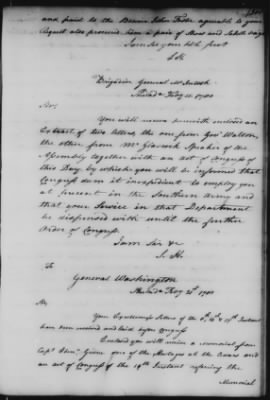 and paid to the Bearer John Fisher agreeable to your
Request also procured him a pair of Shoes and
I am Sir your hble servt
S. H.
Brigadier General McIntosh
Philada Feby 15 1780
Sir,
You will receive herewith enclosed an
Extract of two letters, the one from Govr Walton,
the other from Mr Glascock Speaker of the
Assembly together with an act of Congress of
this Day by which you will be informed that
Congress deem it inexpedient to employ you
at present in the Southern Army and
that your Service in that Department
be dispensed with until the further
Order of Congress.
I am Sir &c
S. H.
To
General Washington
Philada Feby 21st 1780
Sir,
Your Excellency's Letters of the & 17th Instant
have been received and laid before Congress
Enclosed you will receive a memorial from
Capt Green one of the Hostages at the Cedars and
an act of Congress of the 19th Instant referring the
Memorial